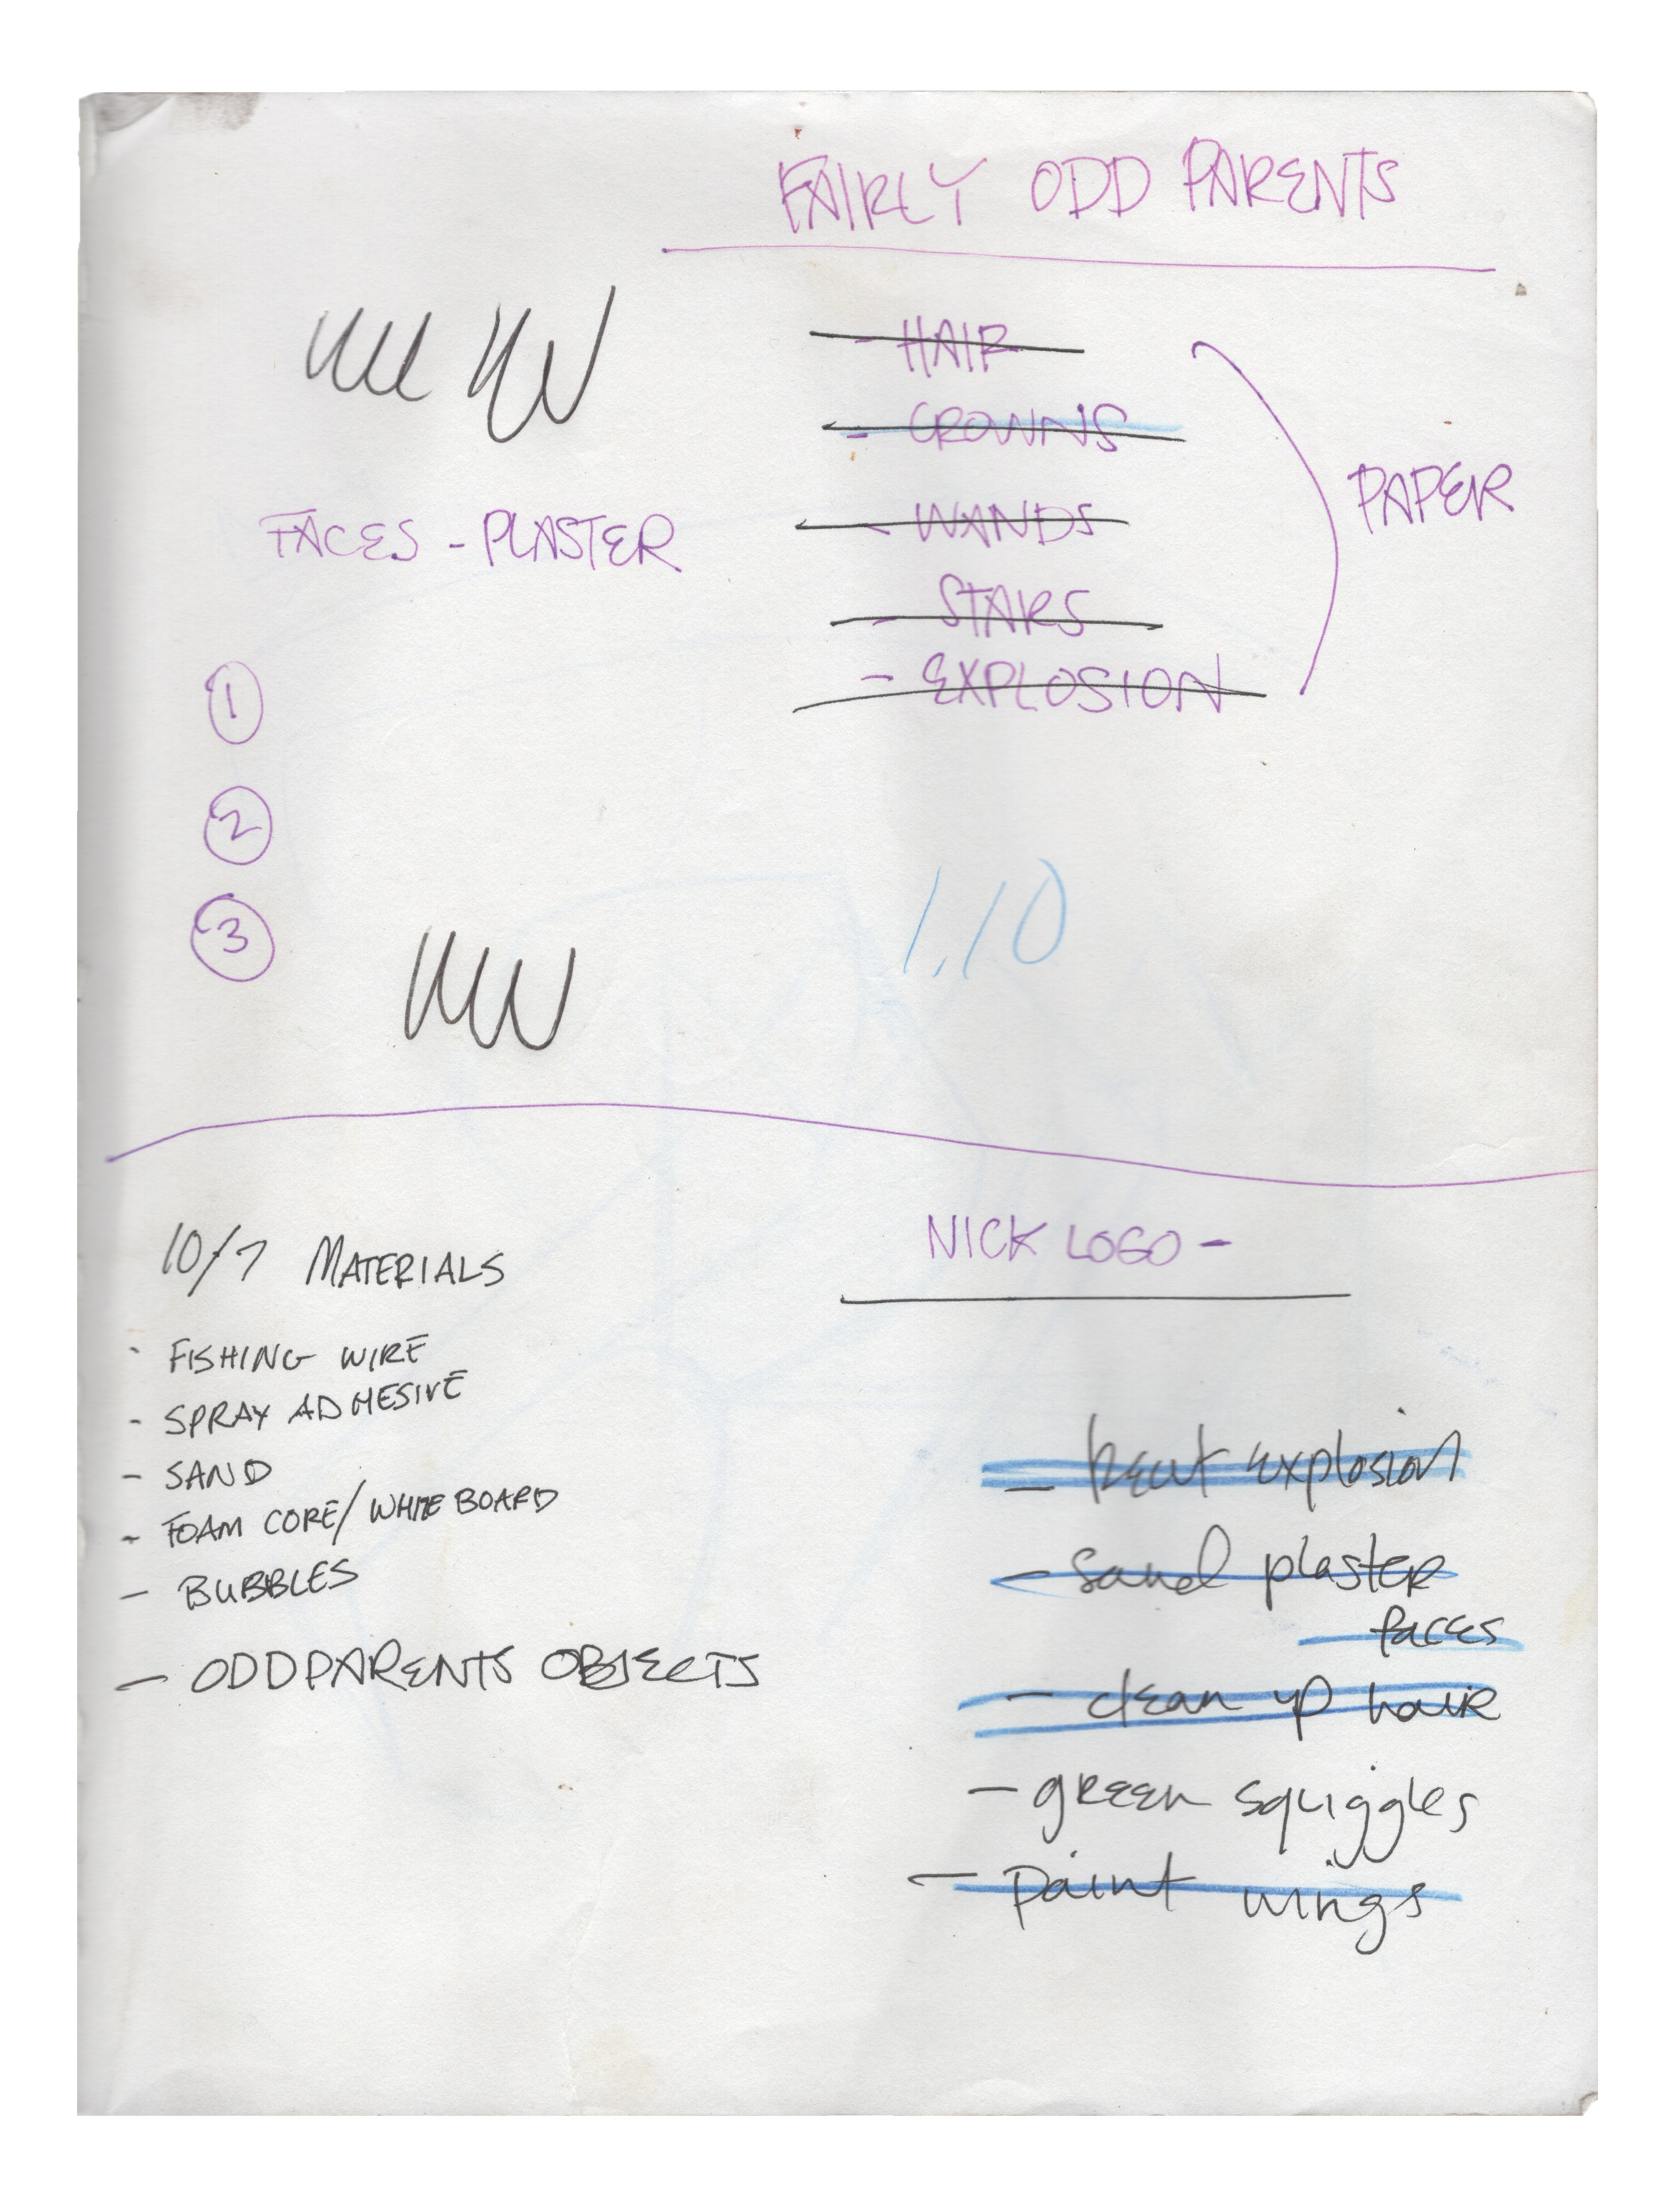 FAIRLY ODD PARENTS
- HAIR
- CROWNS
- WANDS
- STARS
- EXPLOSION
PAPER
FACES - PLASTER
1
2
3
1.10
10/7 MATERIALS
- FISHING WIRE
- SPRAY ADHESIVE
- SAND
- FOAM CORE/WHITE BOARD
- BUBBLES
- ODDPARENTS OBJECTS
NICK LOGO -
- explosion
- sand plaster
faces
- clean up hair
- green squiggles
- paint wings